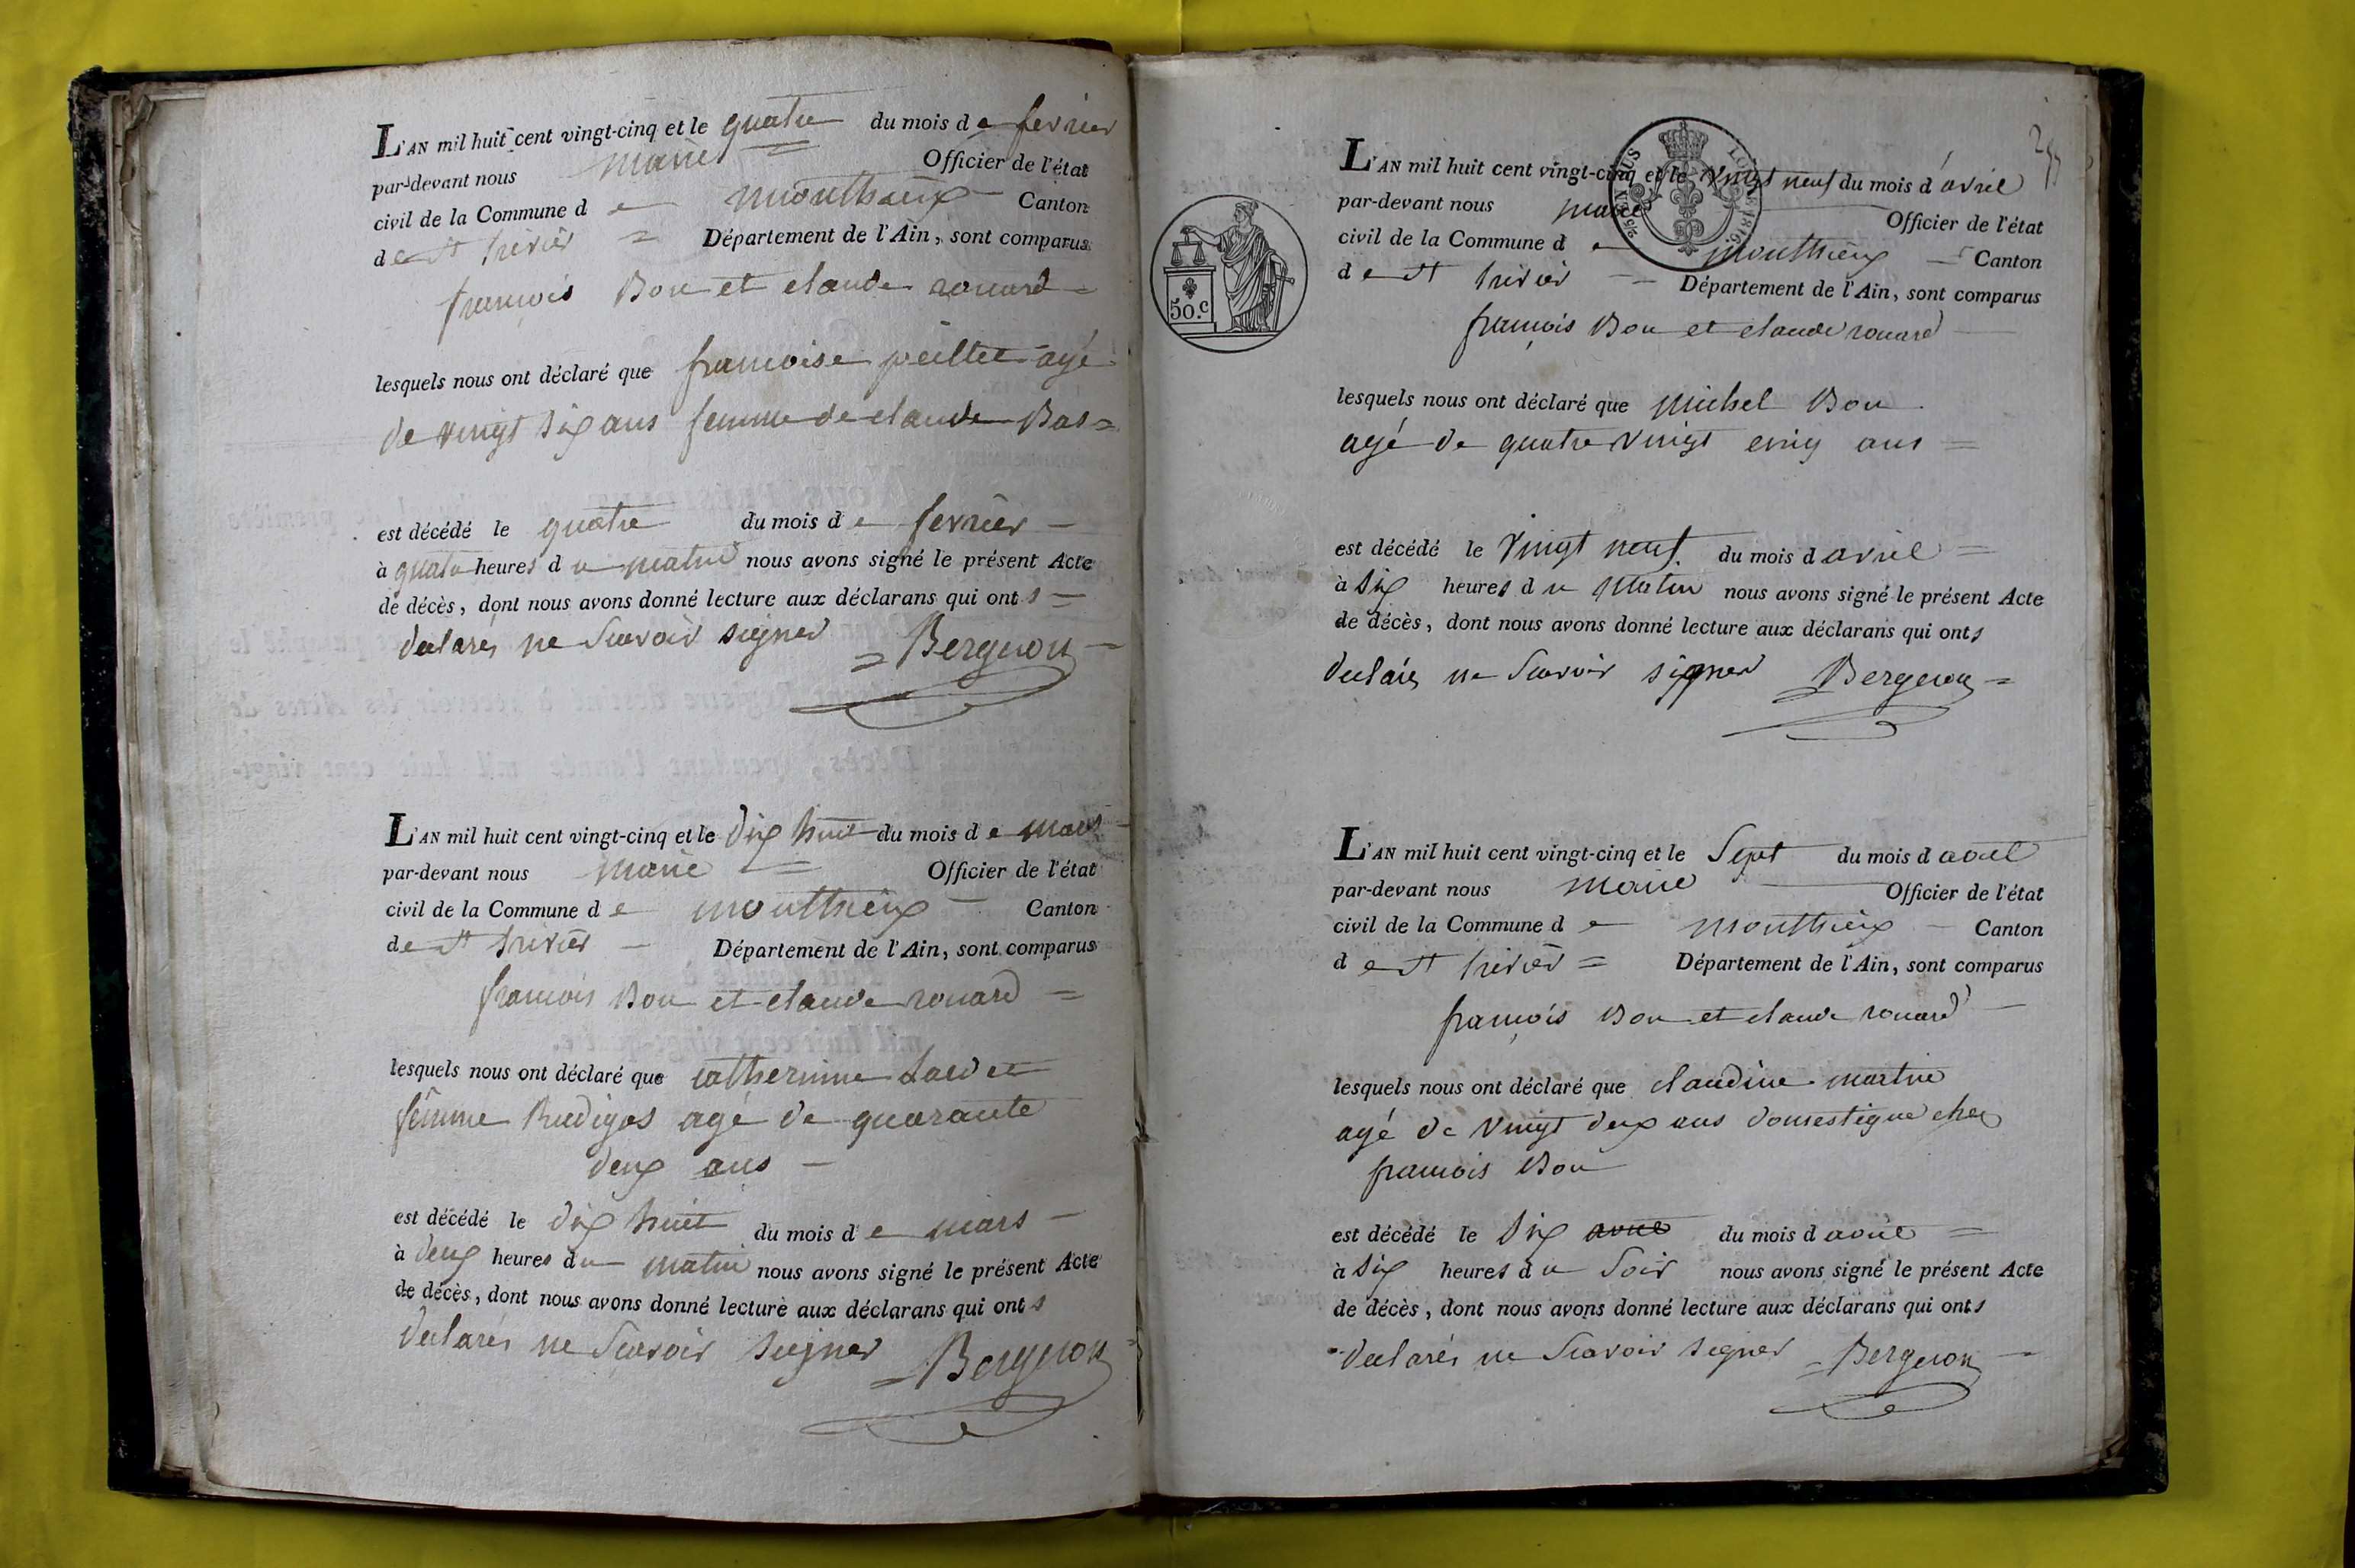 L'AN mil huit cent vingt-cinq et le quatre du mois d e fevrier
par-devant nous maire Officier de l'état
civil de la Commune d e monthieux Canton
d e St trivier Département de l'Ain, sont comparus
françois Bon et claude rouard
lesquels nous ont déclaré que francoise peillet agé
de vingt six ans femme de claude Bas
est décédé le quatre du mois d e fevrier
à quatre heures d u matin nous avons signé le présent Acte
de décès, dont nous avons donné lecture aux déclarans qui ont s
declarés ne Scavoir signer Bergeron
L'AN mil huit cent vingt-cinq et le dix huit du mois d e mars
par-devant nous maire Officier de l'état
civil de la Commune d e monthieux Canton
d e St trivier Département de l'Ain, sont comparus
francois Bon et claude rouard
lesquels nous ont déclaré que catherinne
femme agé de quarante
deux ans
est décédé le dix huit du mois d e mars
à deux heures d u matin nous avons signé le présent Acte
de décès, dont nous avons donné lecture aux déclarans qui ont s
declarés ne Scavoir signer Bergeron
L'AN mil huit cent vingt-cinq et le vingt neuf du mois d avril
par-devant nous maire Officier de l'état
civil de la Commune d e monthieux Canton
d e St trivier Département de l'Ain, sont comparus
françois Bon et claude rouard
50.c
lesquels nous ont déclaré que michel Bon
agé de quatre vingt cinq ans
est décédé le vingt neuf du mois d avril
à six heures d u matin nous avons signé le présent Acte
de décès, dont nous avons donné lecture aux déclarans qui ont s
declarés ne Scavoir signer Bergeron
L'AN mil huit cent vingt-cinq et le Sept du mois d aout
par-devant nous maire Officier de l'état
civil de la Commune d e monthieux Canton
d e St trivier Département de l'Ain, sont comparus
françois Bon et claude rouard
lesquels nous ont déclaré que claudine martin
agé de vingt deux ans domestique chez
francois Bon
est décédé le Six du mois d
à six heures d u Soir nous avons signé le présent Acte
de décès, dont nous avons donné lecture aux déclarans qui ont s
declarés ne Scavoir signer Bergeron